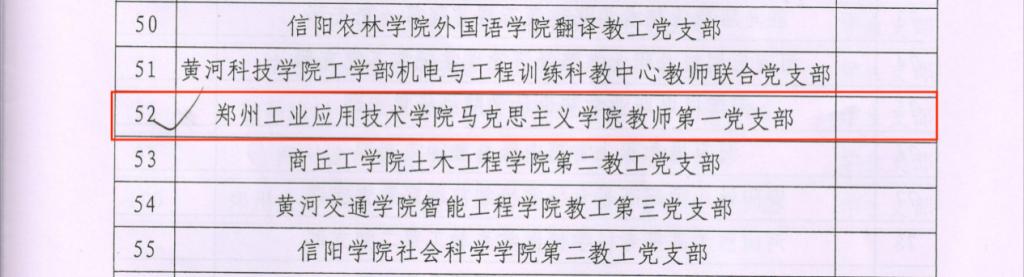 50 信阳农林学院外国语学院翻译教工党支部
51 黄河科技学院工学部机电与工程训练科教中心教师联合党支部
52 郑州工业应用技术学院马克思主义学院教师第一党支部
53 商丘工学院土木工程学院第二教工党支部
54 黄河交通学院智能工程学院教工第三党支部
55 信阳学院社会科学学院第二教工党支部